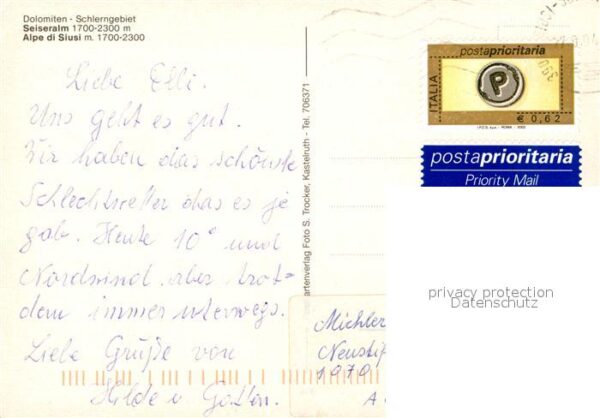 Dolomiten - Schlerngebiet
Seiseralm 1700-2300 m
Alpe di Siusi m. 1700-2300
Liebe Elli.
Uns geht es gut.
Wir haben das schönste
Schlechtwetter das es je
gab. Heute 10° und
Nordwind aber trotz=
dem immer unterwegs.
Liebe Grüße von
Hilde u
artenverlag Foto S. Trocker, Kastelruth - Tel. 706371
postaprioritaria
ITALIA
P
€ 0,62
postaprioritaria
Priority Mail
privacy protection
Datenschutz
Michler
Neustif
1070
A